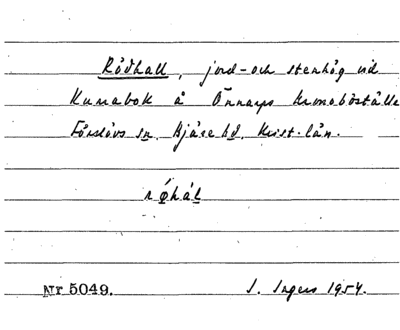 Rödhall, jord- och stenhög vid
Kunabok å Önnarps kronoboställe
Förslövs sn. Bjäre hd. Krist. län.
r ø̨ hál
Nr 5049.
I. Ingers 1954.